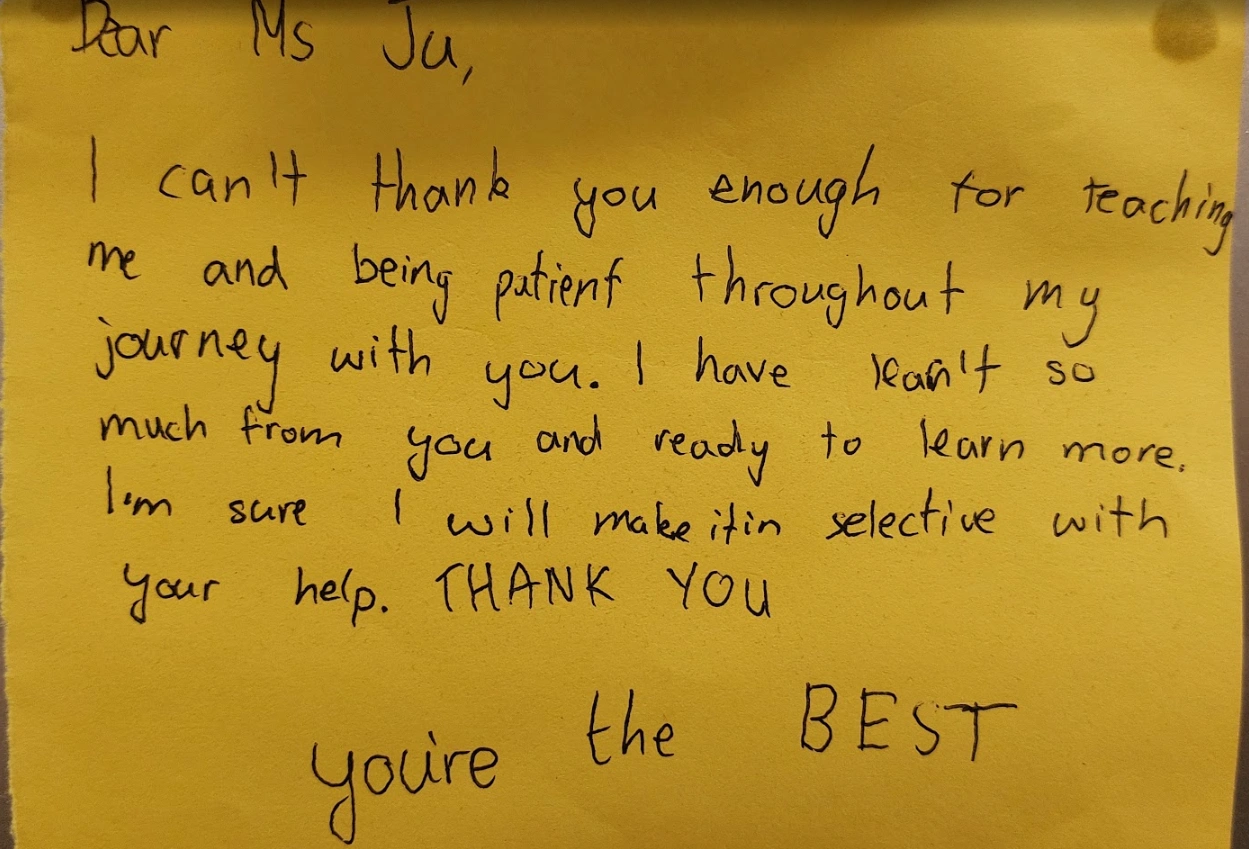 Dear Ms Ju,
I can't thank you enough for teaching
me and being patient throughout my
journey with you. I have lean't so
much from you and ready to learn more.
I'm sure I will make it in selective with
your help. THANK YOU
you're the BEST